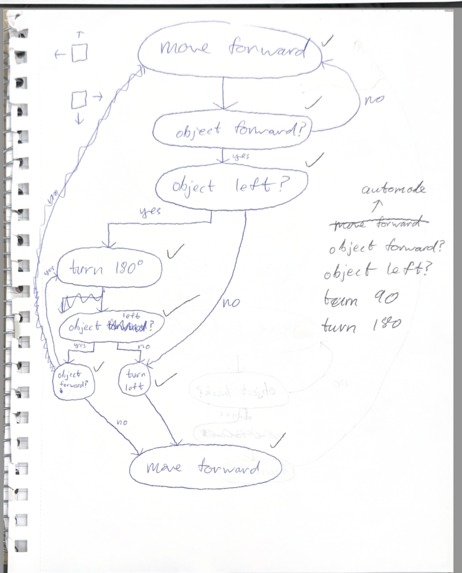 move forward
no
object forward?
yes
object left?
automode
move forward
object forward?
object left?
turn 90
turn 180
yes
turn 180°
no
left
object forward?
yes
no
object forward?
turn left
no
move forward